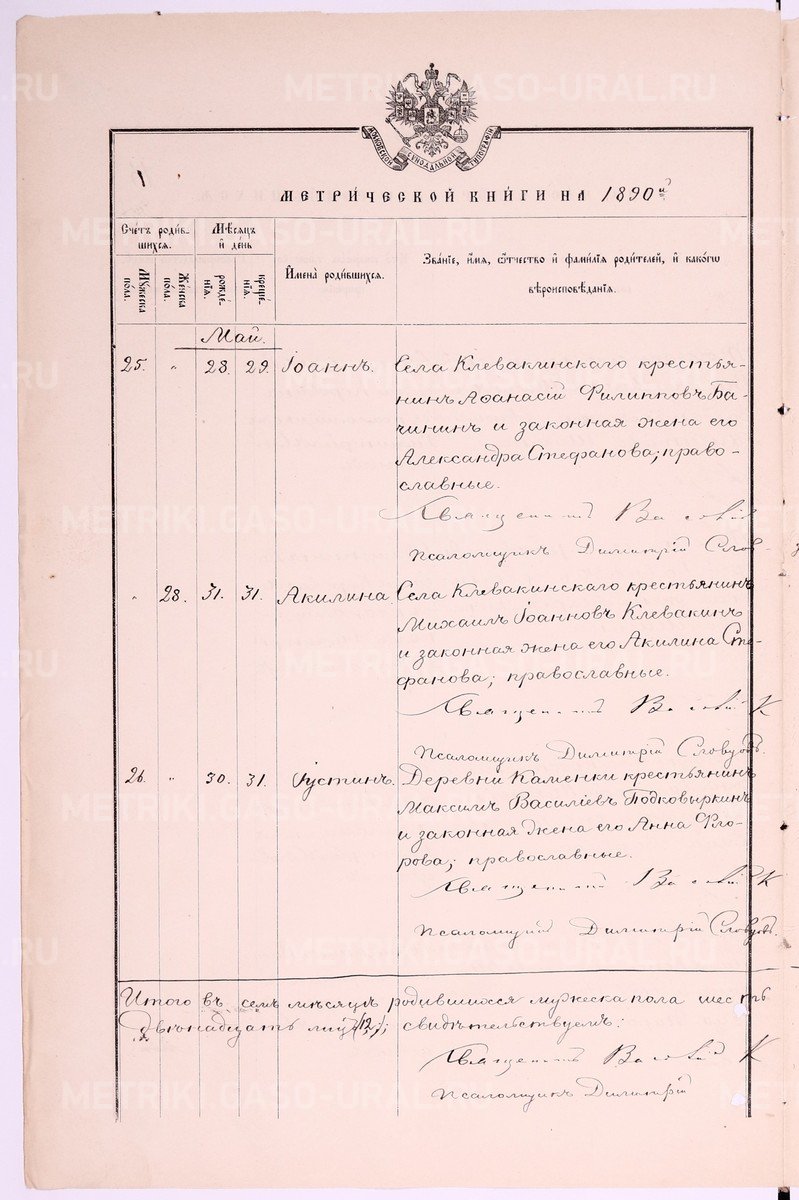 МЕТРИ́ЧЕСКОЙ КНИ́ГИ НА 1890 й
Сче́тъ роди́в-
шихся.
Мѣ́сяцъ
и де́нь
Му́жеска
по́ла.
Же́нска
по́ла.
рожде́-
нія.
креще́-
нія.
Имена̀ роди́вшихся.
Зва́ніе, и́мя, ѻ́тчество и фами́лія роди́телей, и како́гѡ
вѣроисповѣ́данія.
Май.
25. " 28. 29. Іоаннъ. Села Клевакинскаго крестья-
нинъ Аѳанасій Филипповъ Ба-
чининъ и законная жена его
Александра Стефанова; право-
славные.
Священникъ
Псаломщикъ Димитрій Слов-
" 28. 31. 31. Акилина Села Клевакинскаго крестьянинъ
Михаилъ Іоанновъ Клевакинъ
и законная жена его Акилина Сте-
фанова; православные.
Священникъ К
Псаломщикъ Димитрій Словцовъ.
26. " 30. 31. Іустинъ. Деревни Каменки крестьянинъ
Максимъ Василіевъ Подковыркинъ
и законная жена его Анна Фло-
рова; православные.
Священникъ К
Псаломщикъ Димитрій Словцовъ.
Итого въ семъ мѣсяцѣ родившихся мужеска пола шесть
Двѣнадцать (12.); свидѣтельствуемъ:
Священникъ К
Псаломщикъ Димитрій
METRIKI.GASO-URAL.RU